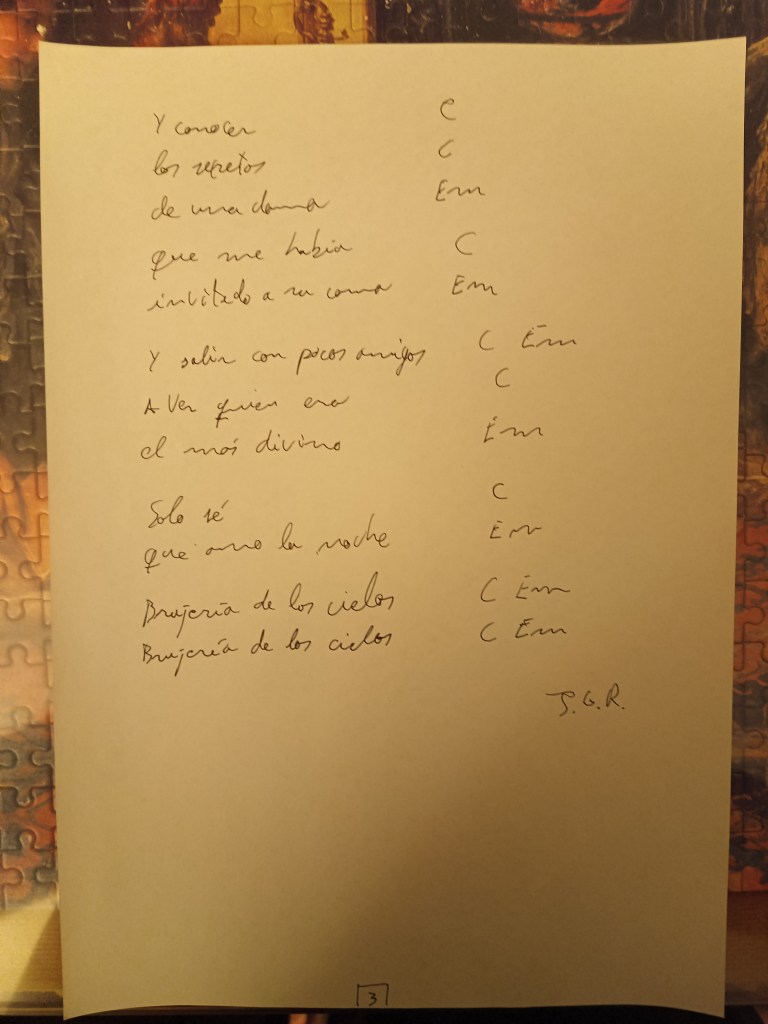 Y conocer C
los secretos C
de una dama Em
que me había C
invitado a su cama Em
Y salir con pocos amigos C Em
A ver quien era C
el más divino Em
Solo sé C
que amo la noche Em
Brujería de los cielos C Em
Brujería de los cielos C Em
J.G.R.
3